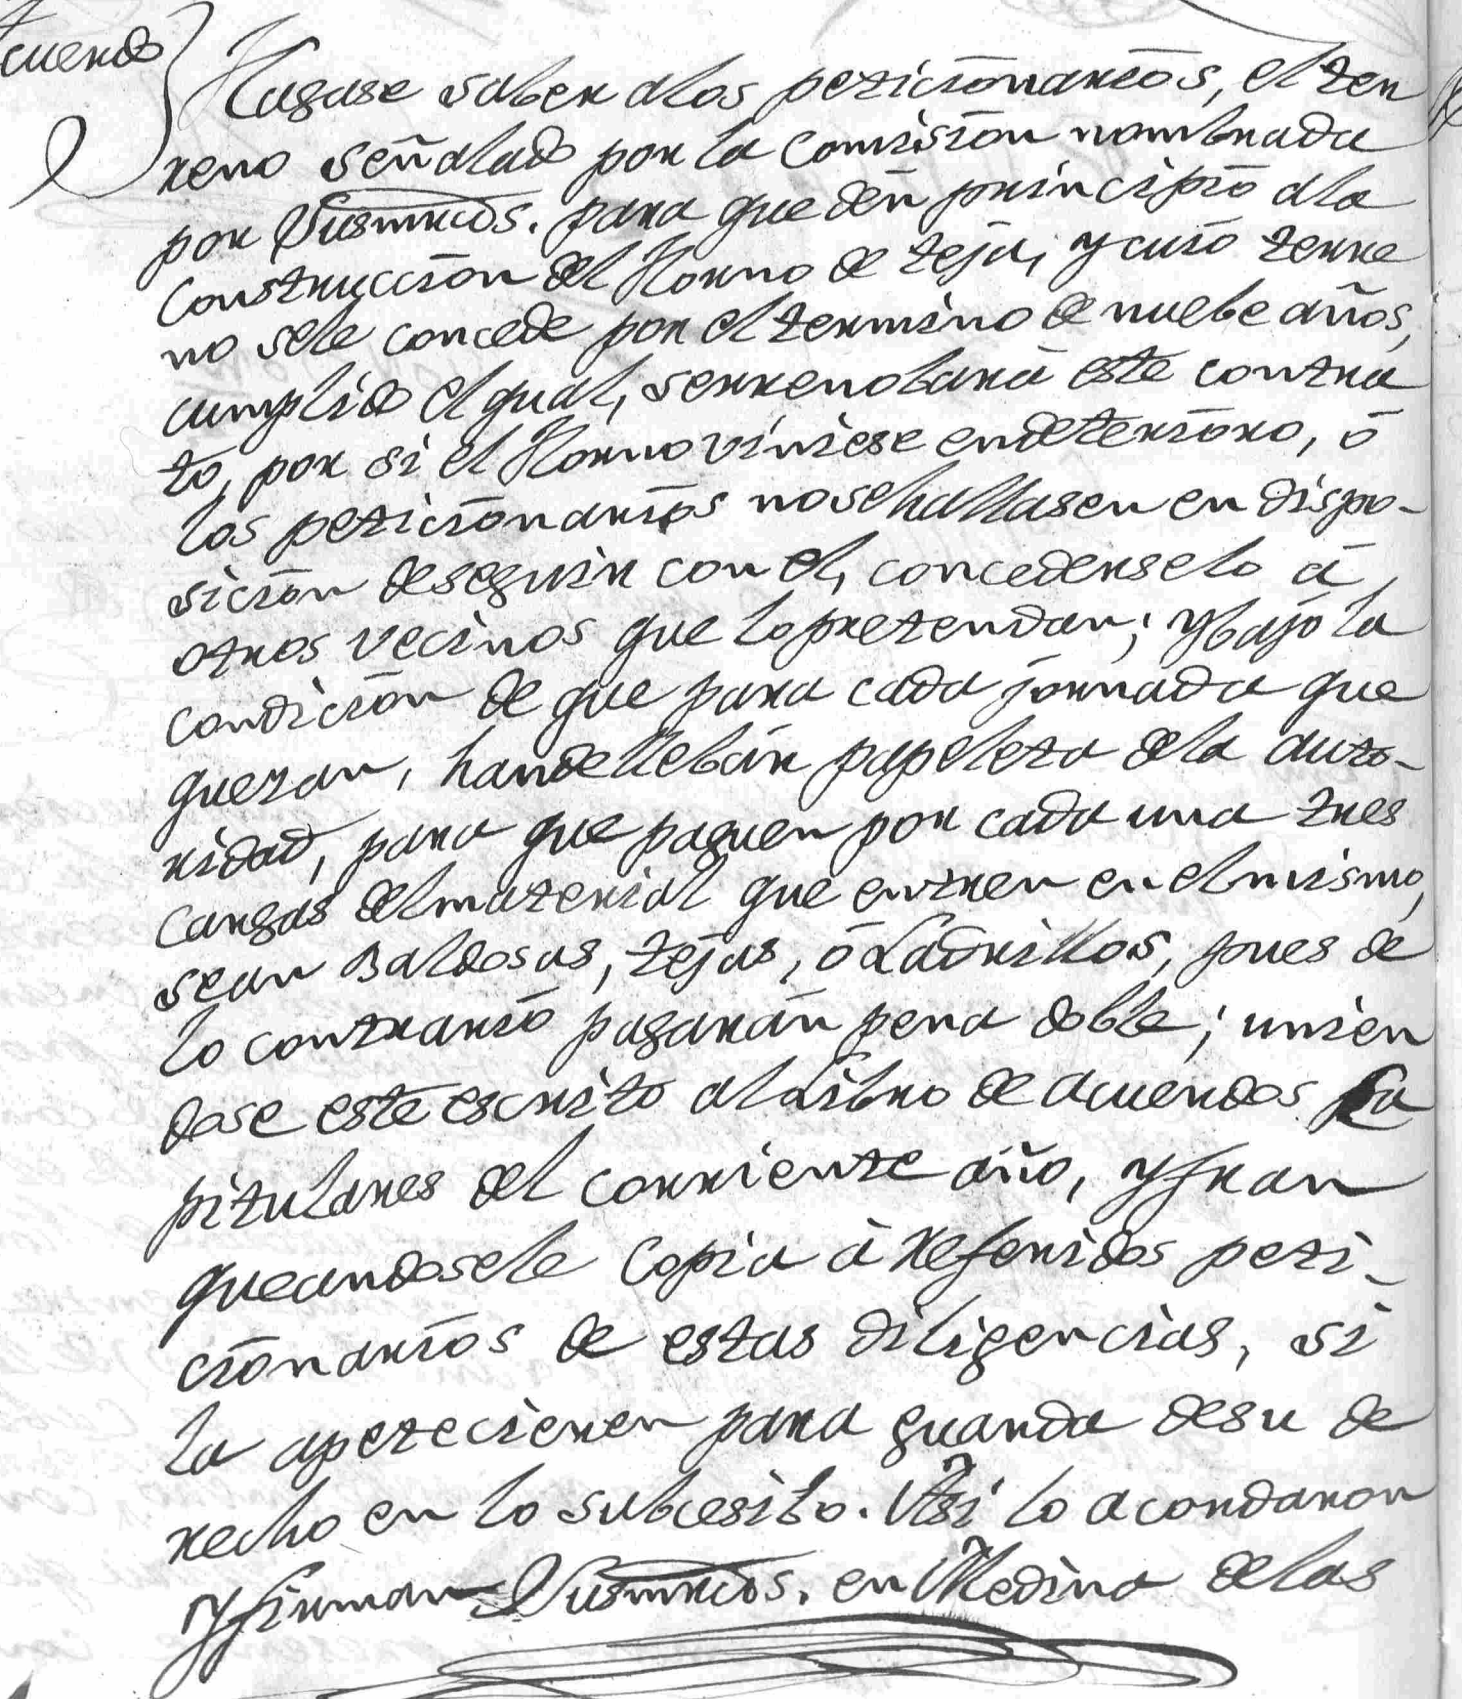 Acuerdo
Hagase saber alos peticionarios, el ter
reno señalado por la Comision nombrada
por Vusmrcds. para que den principio ala
Construccion del Horno de teja, y cuio terre
no sele concede por el termino de nuebe años,
cumplido el qual, serrenobará este contra
to, por si el Horno viniese endeterioro, ó
los peticionarios nosehallasen en dispo-
sicion deseguir con el, concederselo á
otros vecinos que lo pretendan; y bajo la
condicion de que para cada jornada que
quezan, handellebar papeleta dela auto-
ridad, para que paguen por cada una tres
Cargas delmaterial que entren en elmismo,
sean Baldosas, tejas, ó Ladrillos, pues de
lo contrario pagarán pena doble; unien
dose este escrito al Libro de acuerdos Ca
pitulares del corriente año, y fran
queandosele Copia á referidos peti-
cionarios de estas diligencias, si
la apetecieren para guarda desu de
recho en lo subcesibo. Asi lo acordaron
y firman Vusmrcds. en Medina delas